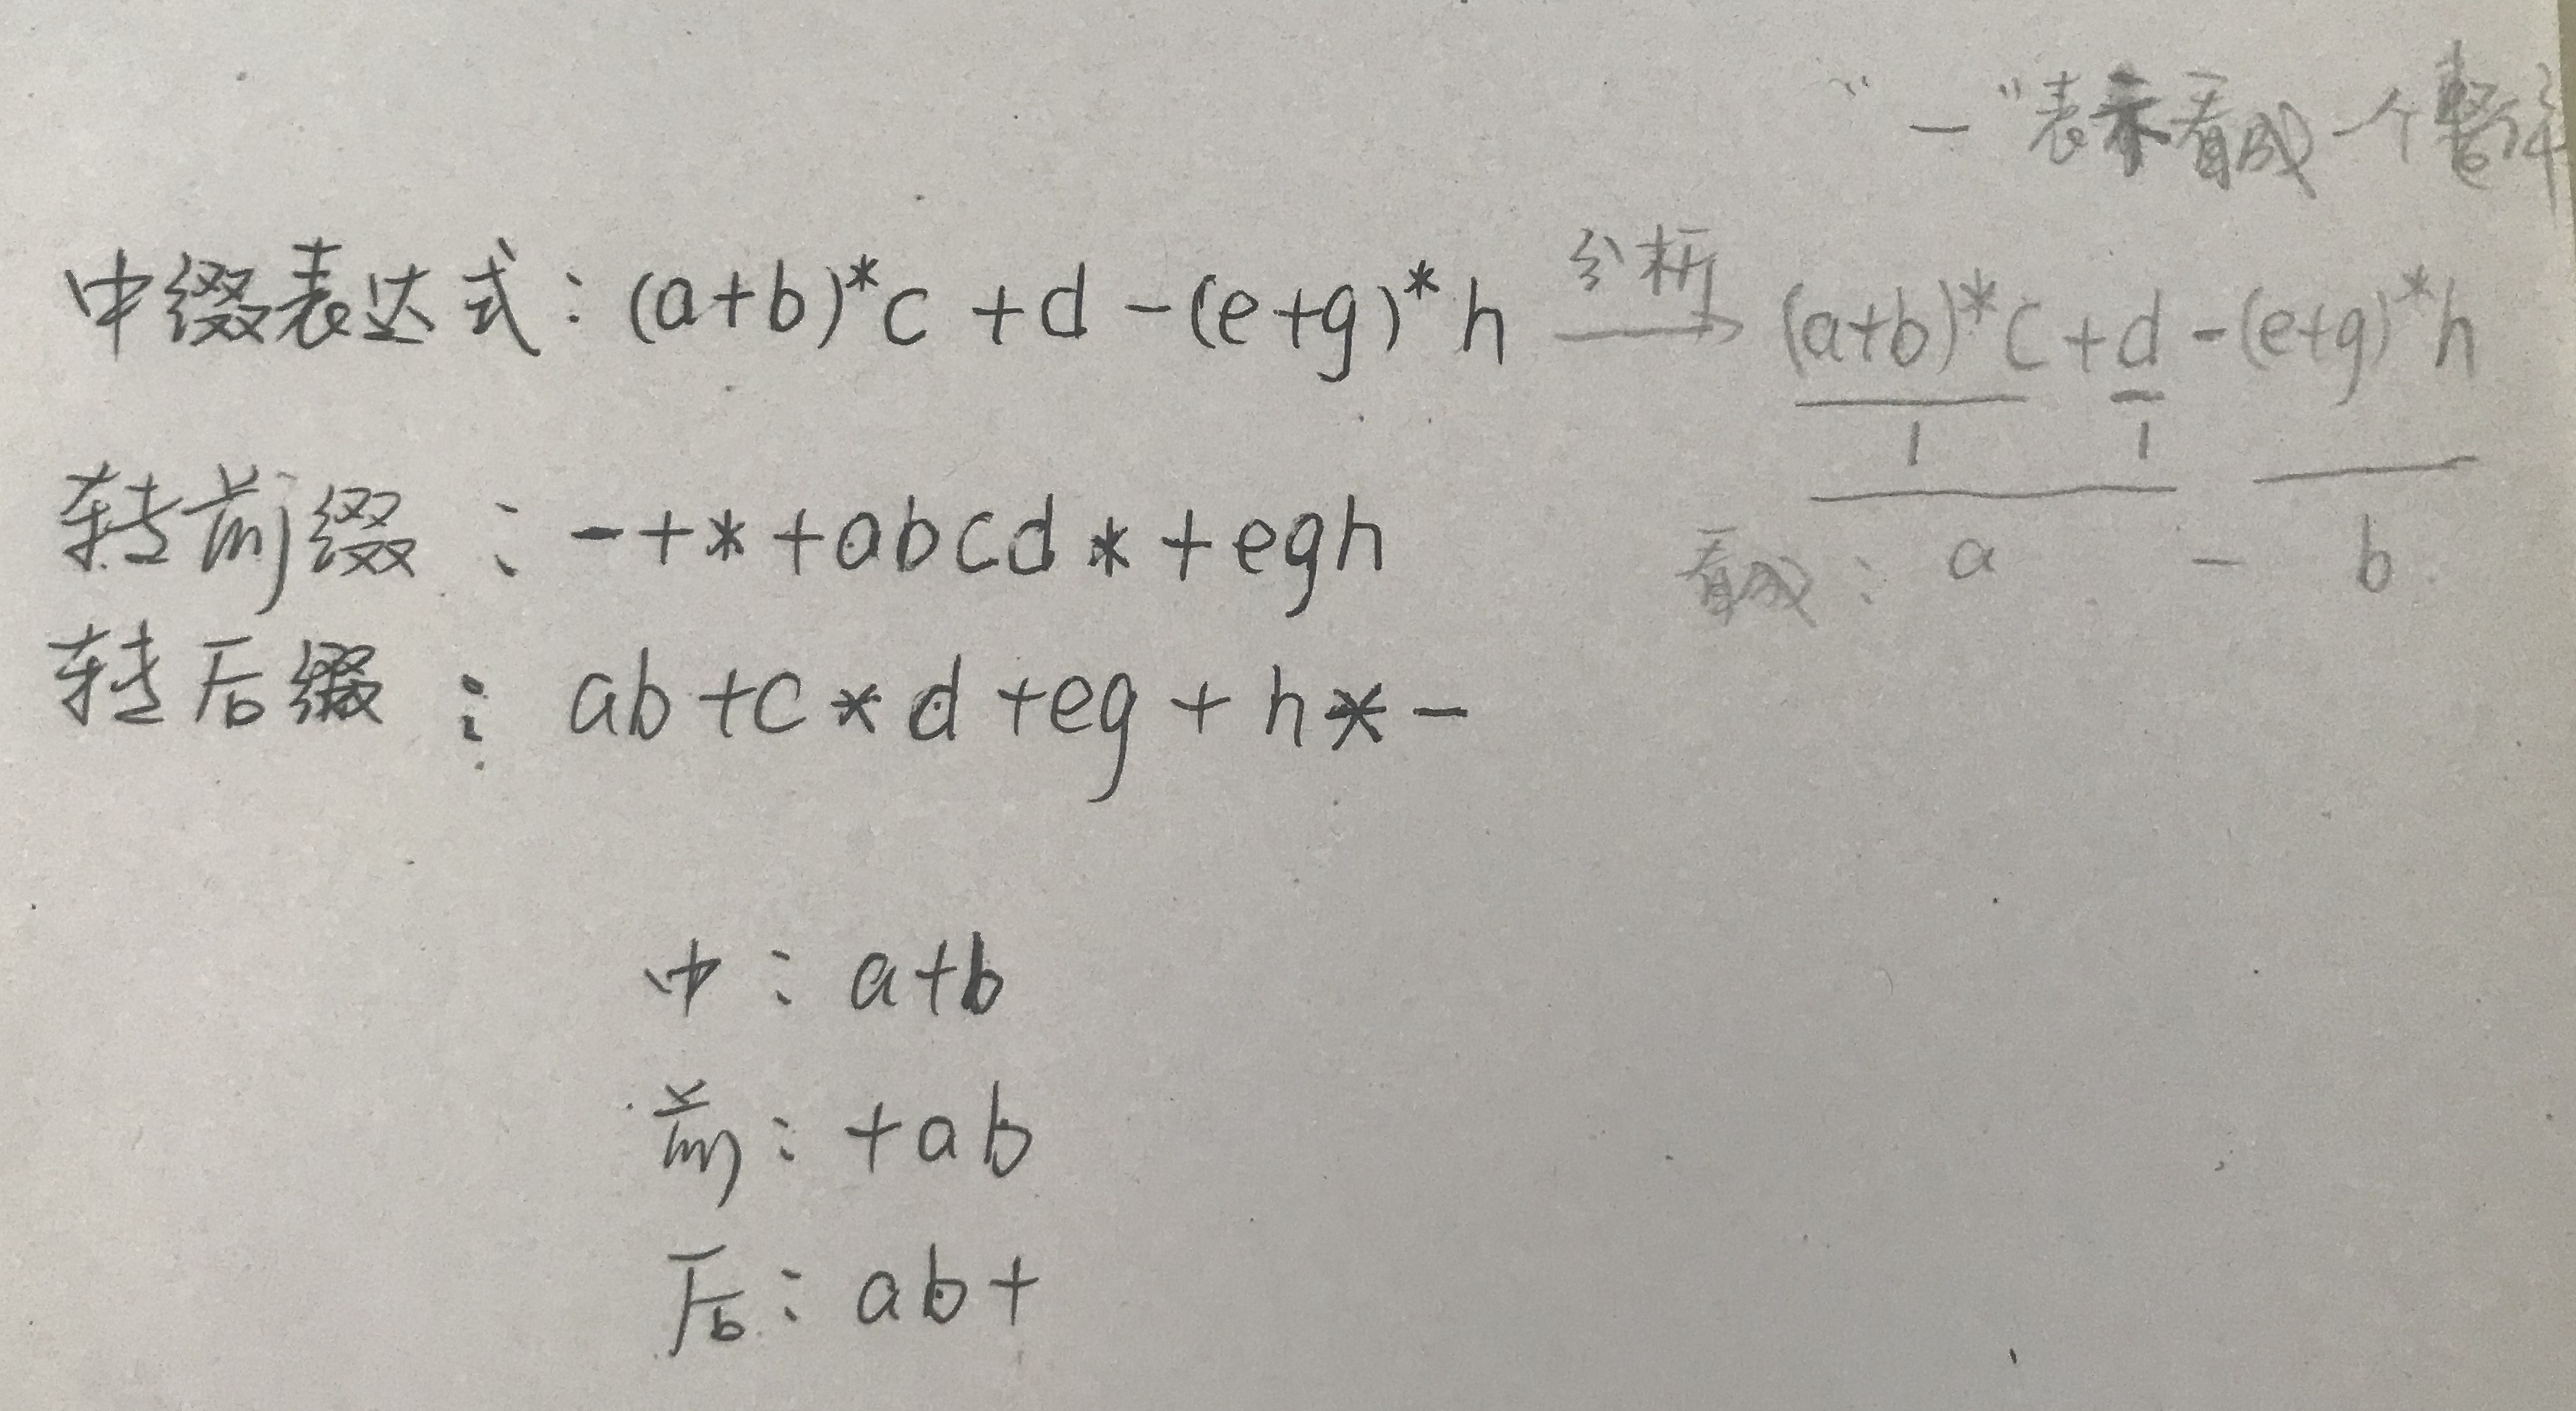 “—”表示看成一个整体
中缀表达式：(a+b)*c+d-(e+g)*h 分析 (a+b)*c+d-(e+g)*h
转前缀：-+*+abcd*+egh
看成：a - b
转后缀：ab+c*d+eg+h*-
中：a+b
前：+ab
后：ab+